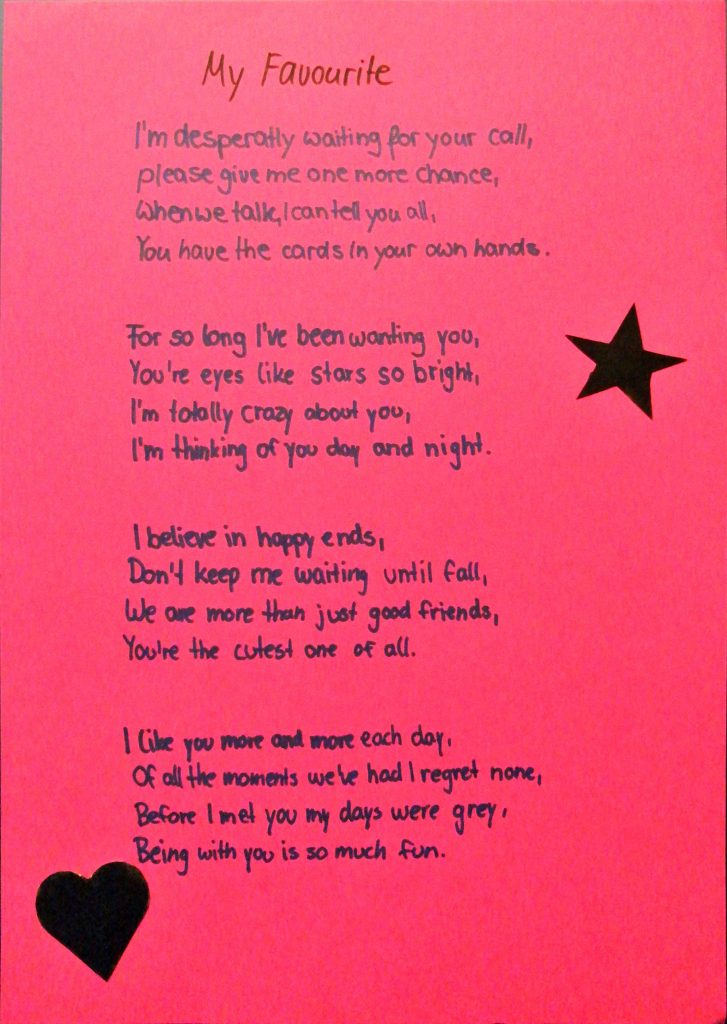 My Favourite
I'm desperatly waiting for your call,
please give me one more chance,
When we talk, I can tell you all,
You have the cards in your own hands.
For so long I've been wanting you,
You're eyes like stars so bright,
I'm totally crazy about you,
I'm thinking of you day and night.
I believe in happy ends,
Don't keep me waiting until fall,
We are more than just good friends,
You're the cutest one of all.
I like you more and more each day,
Of all the moments we've had I regret none,
Before I met you my days were grey,
Being with you is so much fun.